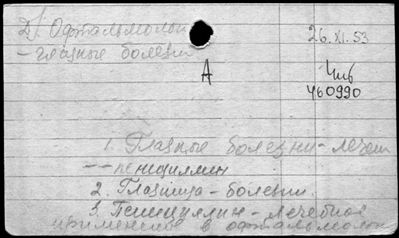 Д/ Офтальмологи
26.XI.53
- глазные болезни
А
Чиб
460990
1. Глазные болезни - лечен
-- пенициллин
2. Глазница - болезни.
3. Пенициллин - лечебное
применение в офтальмолог